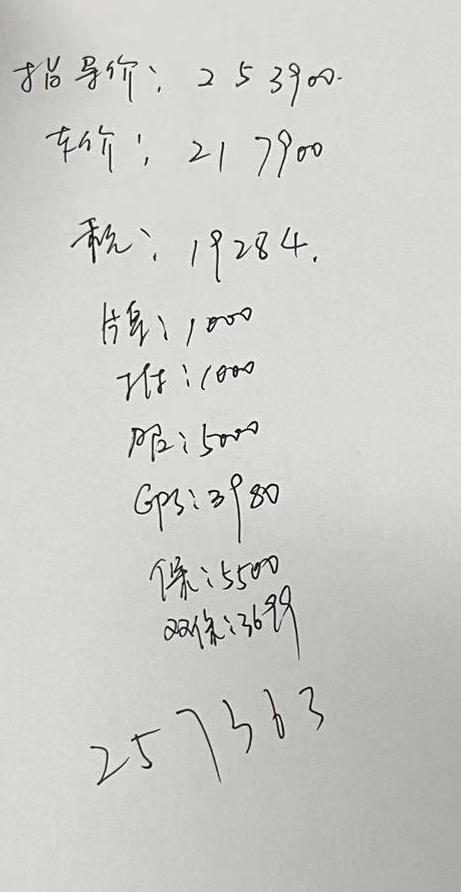 指导价:253900.
车价:217900
税:19284.
牌:1000
押:1000
服:5000
GPS:3980
保:5500
双保:3699
257363